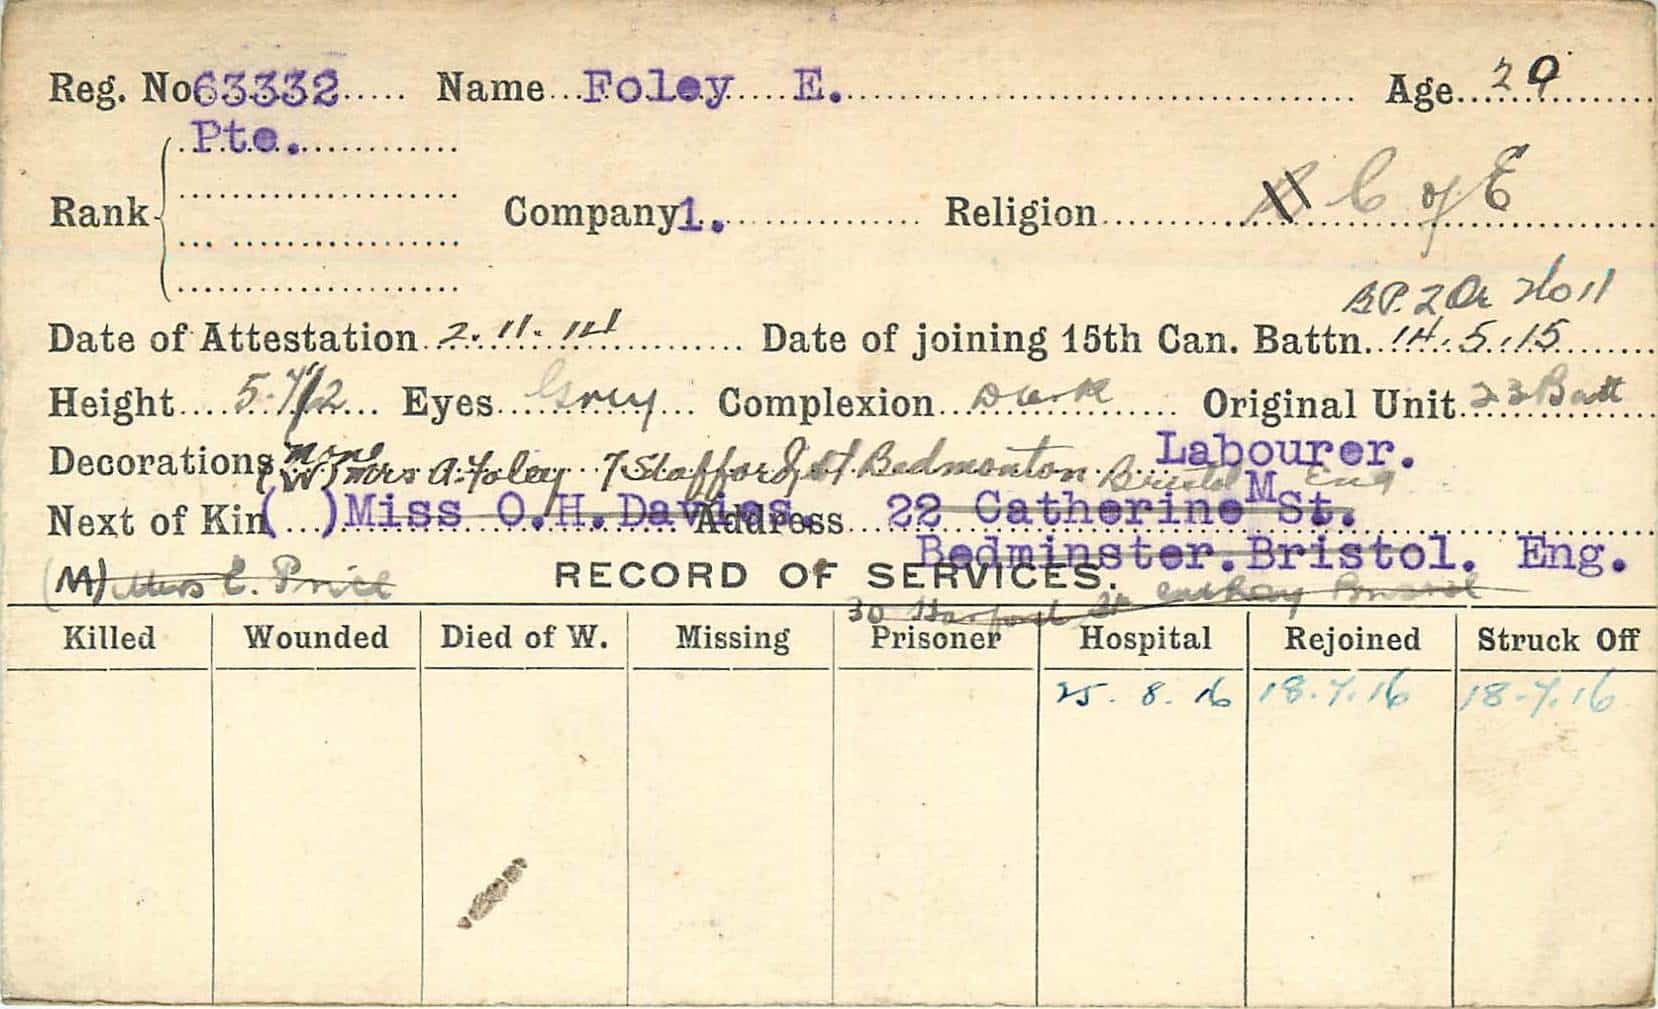 Reg. No 63332 Name Foley E. Age 29
Pte.
Rank Company 1. Religion C of E
B.P. 2
Date of Attestation 2.11.14 Date of joining 15th Can. Battn. 14.5.15
Height 5.7 1/2 Eyes Grey Complexion Dark Original Unit 23 Batt
Labourer.
Decorations None
(W) Mrs A. Foley 7 Stafford St Bedmonton Bristol Eng
Next of Kin ( ) Miss O.H. Davies. Address 22 Catherine M St.
Bedminster. Bristol. Eng.
(M) Mrs E. Price RECORD OF SERVICES.
30 St
Killed Wounded Died of W. Missing Prisoner Hospital Rejoined Struck Off
25.8.16 18.7.16 18-7.16